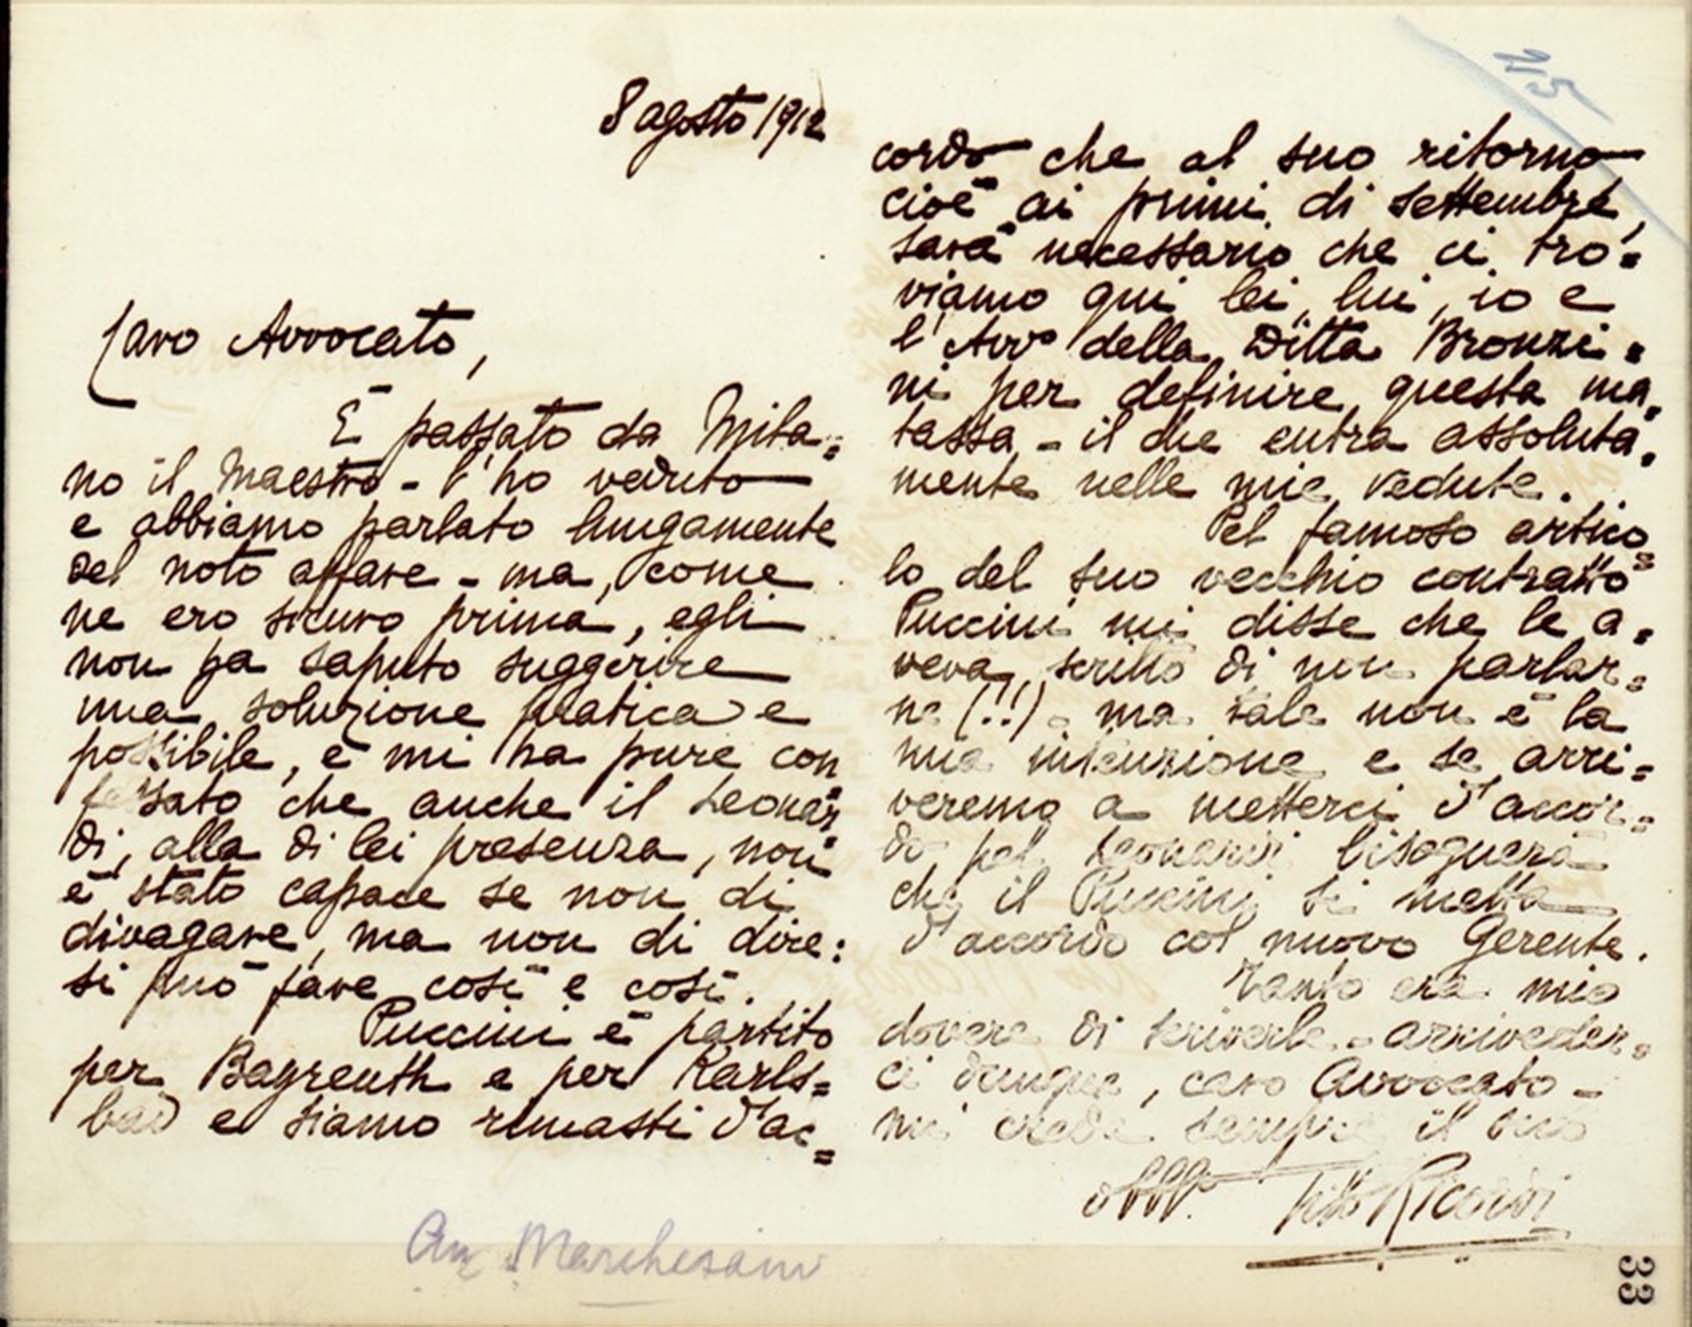 8 agosto 1912
Caro Avvocato,
È passato da Mila=
no il Maestro - l'ho veduto
e abbiamo parlato lungamente
del noto affare - ma, come
ne ero sicuro prima, egli
non ha saputo suggerire
una soluzione pratica e
possibile, e mi ha pure con
fessato che anche il Leonar
di, alla di lei presenza, non
è stato capace se non di
divagare, ma non di dire:
si può fare così e così.
Puccini è partito
per Bayreuth e per Karls=
bad e siamo rimasti d'ac=
cordo che al suo ritorno
cioè ai primi di settembre,
sarà necessario che ci tro=
viamo qui lei, lui, io e
l'Avvo della Ditta Bronzi=
ni per definire questa ma=
tassa - il che entra assoluta=
mente nelle mie vedute.
Pel famoso artico=
lo del suo vecchio contratto
Puccini mi disse che le a=
veva scritto di non parlar=
ne (!!) - ma tale non è la
mia intenzione e se arri=
veremo a metterci d'accor=
do pel Leonardi bisognerà
che il Puccini si metta
d'accordo col nuovo Gerente.
Tanto era mio
dovere di scriverle - arriveder=
ci dunque, caro Avvocato -
mi creda sempre il suo
obblo Tito Ricordi
Marchesani
45
33